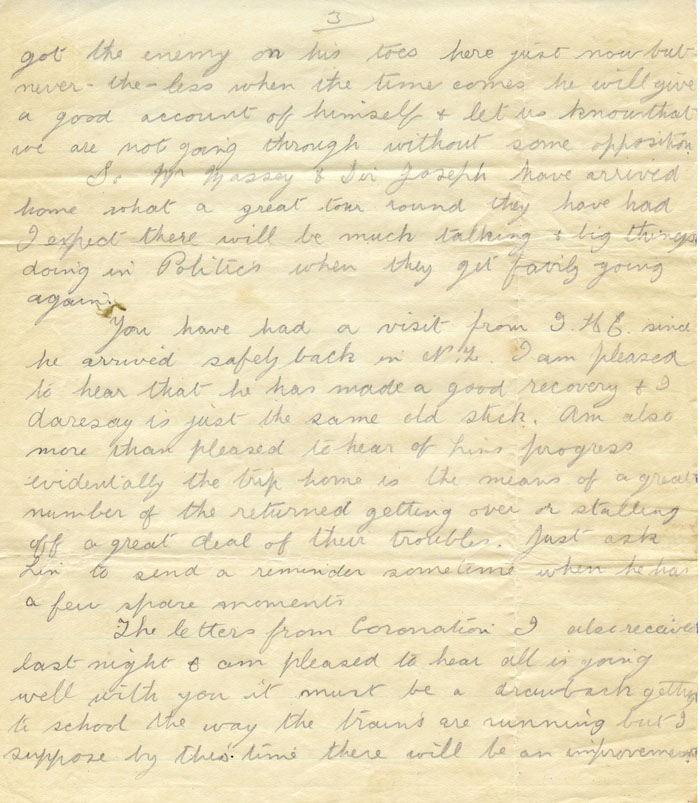 3
got the enemy on his toes here just now but
never-the-less when the time comes he will give
a good account of himself & let us know that
we are not going through without some opposition
So Mr Massey & Sir Joseph have arrived
home what a great tour round they have had
I expect there will be much talking & big things
doing in Politics when they get fairly going
again.
You have had a visit from J. H E. since
he arrived safely back in N.Z. I am pleased
to hear that he has made a good recovery & I
daresay is just the same old stick. Am also
more than pleased to hear of Lins progress
evidentally the trip home is the means of a great
number of the returned getting over or stalling
off a great deal of their troubles. Just ask
Lin to send a reminder sometime when he has
a few spare moments
The letters from Coronation I also receive
last night & am pleased to hear all is going
well with you it must be a drawback getting
to school the way the trains are running but I
suppose by this time there will be an improvement